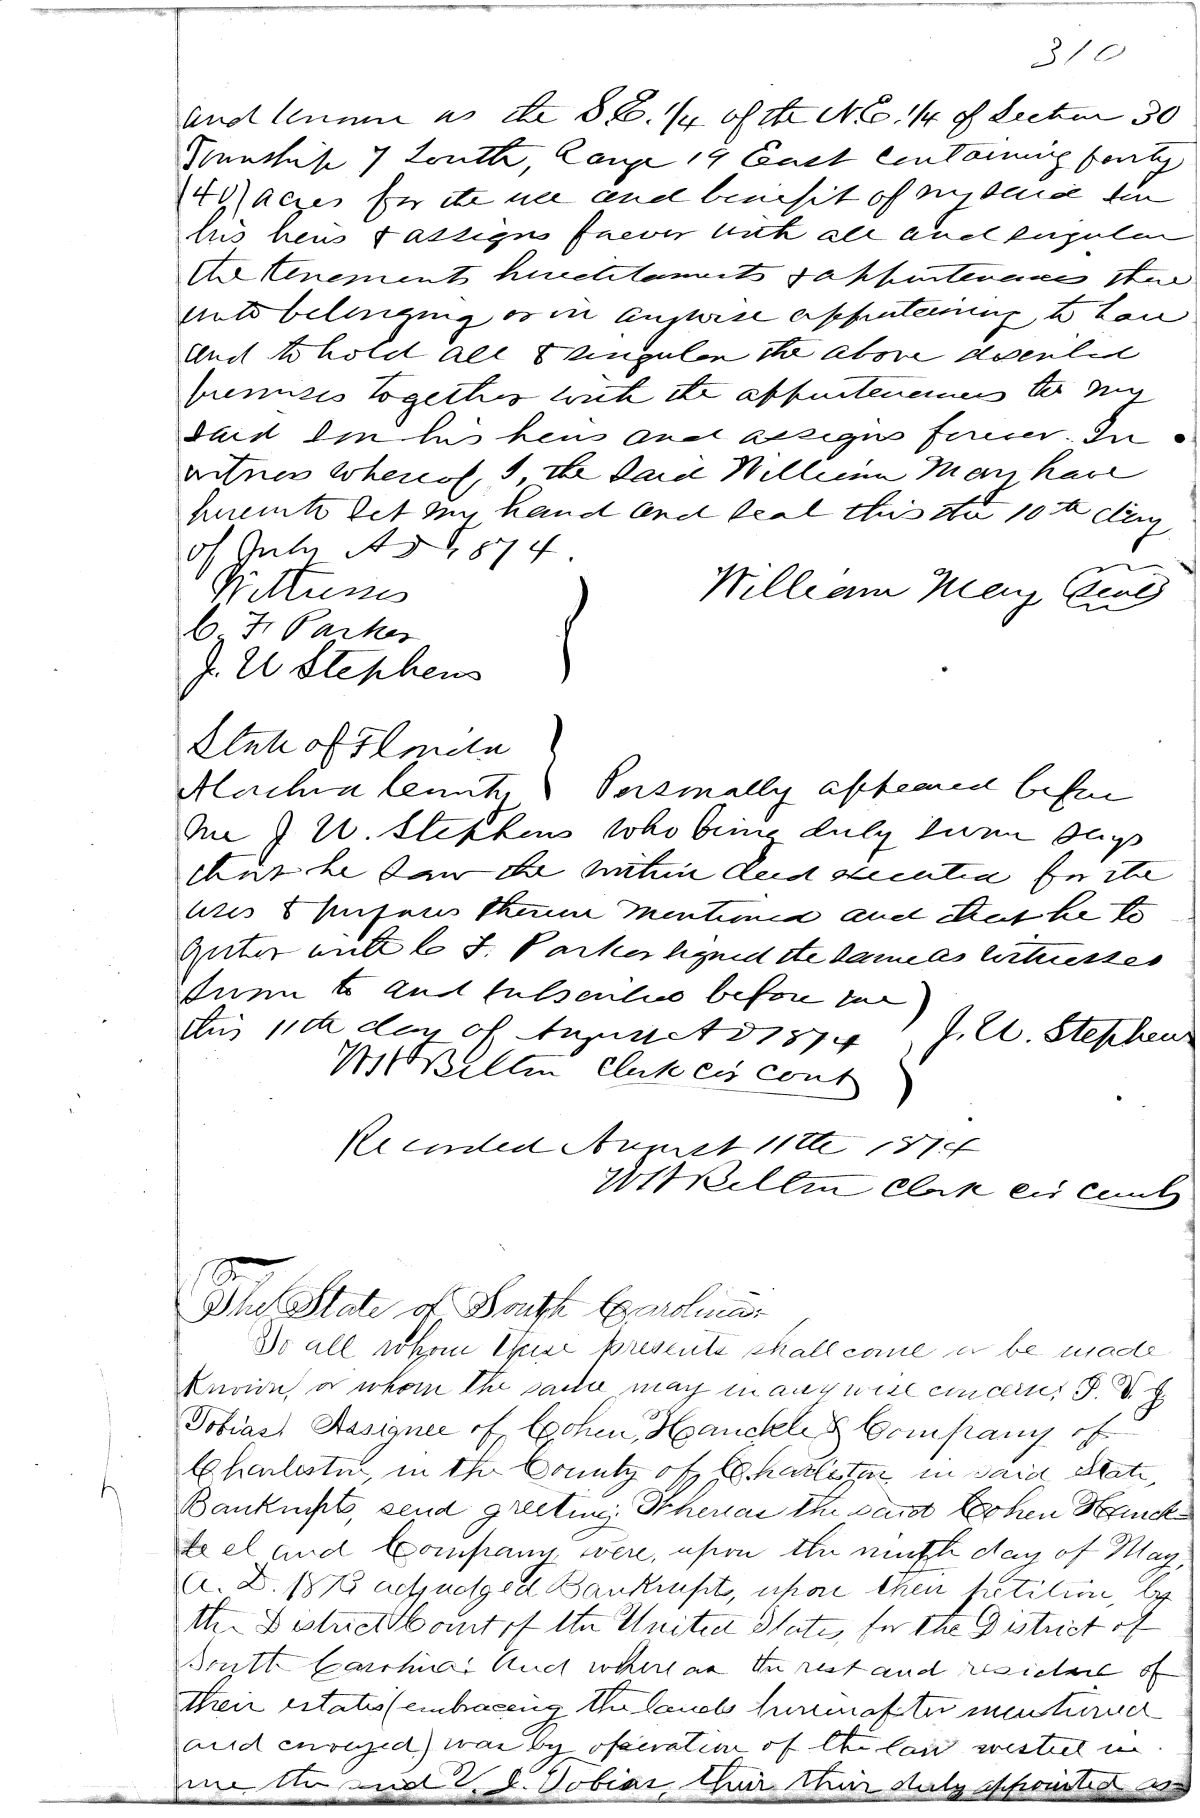 310
and known as the S.E. 1/4 of the N.E. 1/4 of Section 30
Township 7 South, Range 19 East containing forty
(40) acres for the use and benefit of my said son
his heirs & assigns forever with all and singular
the tenements hereditaments & appurtenances there
unto belonging or in anywise appertaining to have
and to hold all & singular the above described
premises together with the appurtenances to my
said son his heirs and assigns forever. In
witness whereof, I, the said William May have
hereunto set my hand and seal this the 10th day
of July A D 1874.
Witnesses
William May (Seal)
C. F. Parker
J. W Stephens
State of Florida
Alachua County } Personally appeared before
me J W. Stephens who being duly sworn says
that he saw the within deed executed for the
uses & purposes therein mentioned and that he to
gether with C F. Parker signed the same as witnesses
Sworn to and subscribed before me
this 11th day of August A D 1874 J. W. Stephens
W H Belton Clerk cir court
Recorded August 11th 1874
W H Belton Clerk cir court
The State of South Carolina:
To all whom these presents shall come or be made
known, or whom the same may in anywise concern; I. V. J
Tobias, Assignee of Cohen, Hanckle & Company of
Charleston, in the County of Charleston in said State,
Bankrupts, send greeting: Whereas the said Cohen Hanck-
le el and Company were, upon the ninth day of May,
A. D. 1873 adjudged Bankrupts, upon their petition, by
the District Court of the United States, for the District of
South Carolina: And whereas the rest and residue of
their estates (embracing the lands hereinafter mentioned
and conveyed) was by operation of the law vested in
me the said V. J. Tobias, their their duly appointed as-